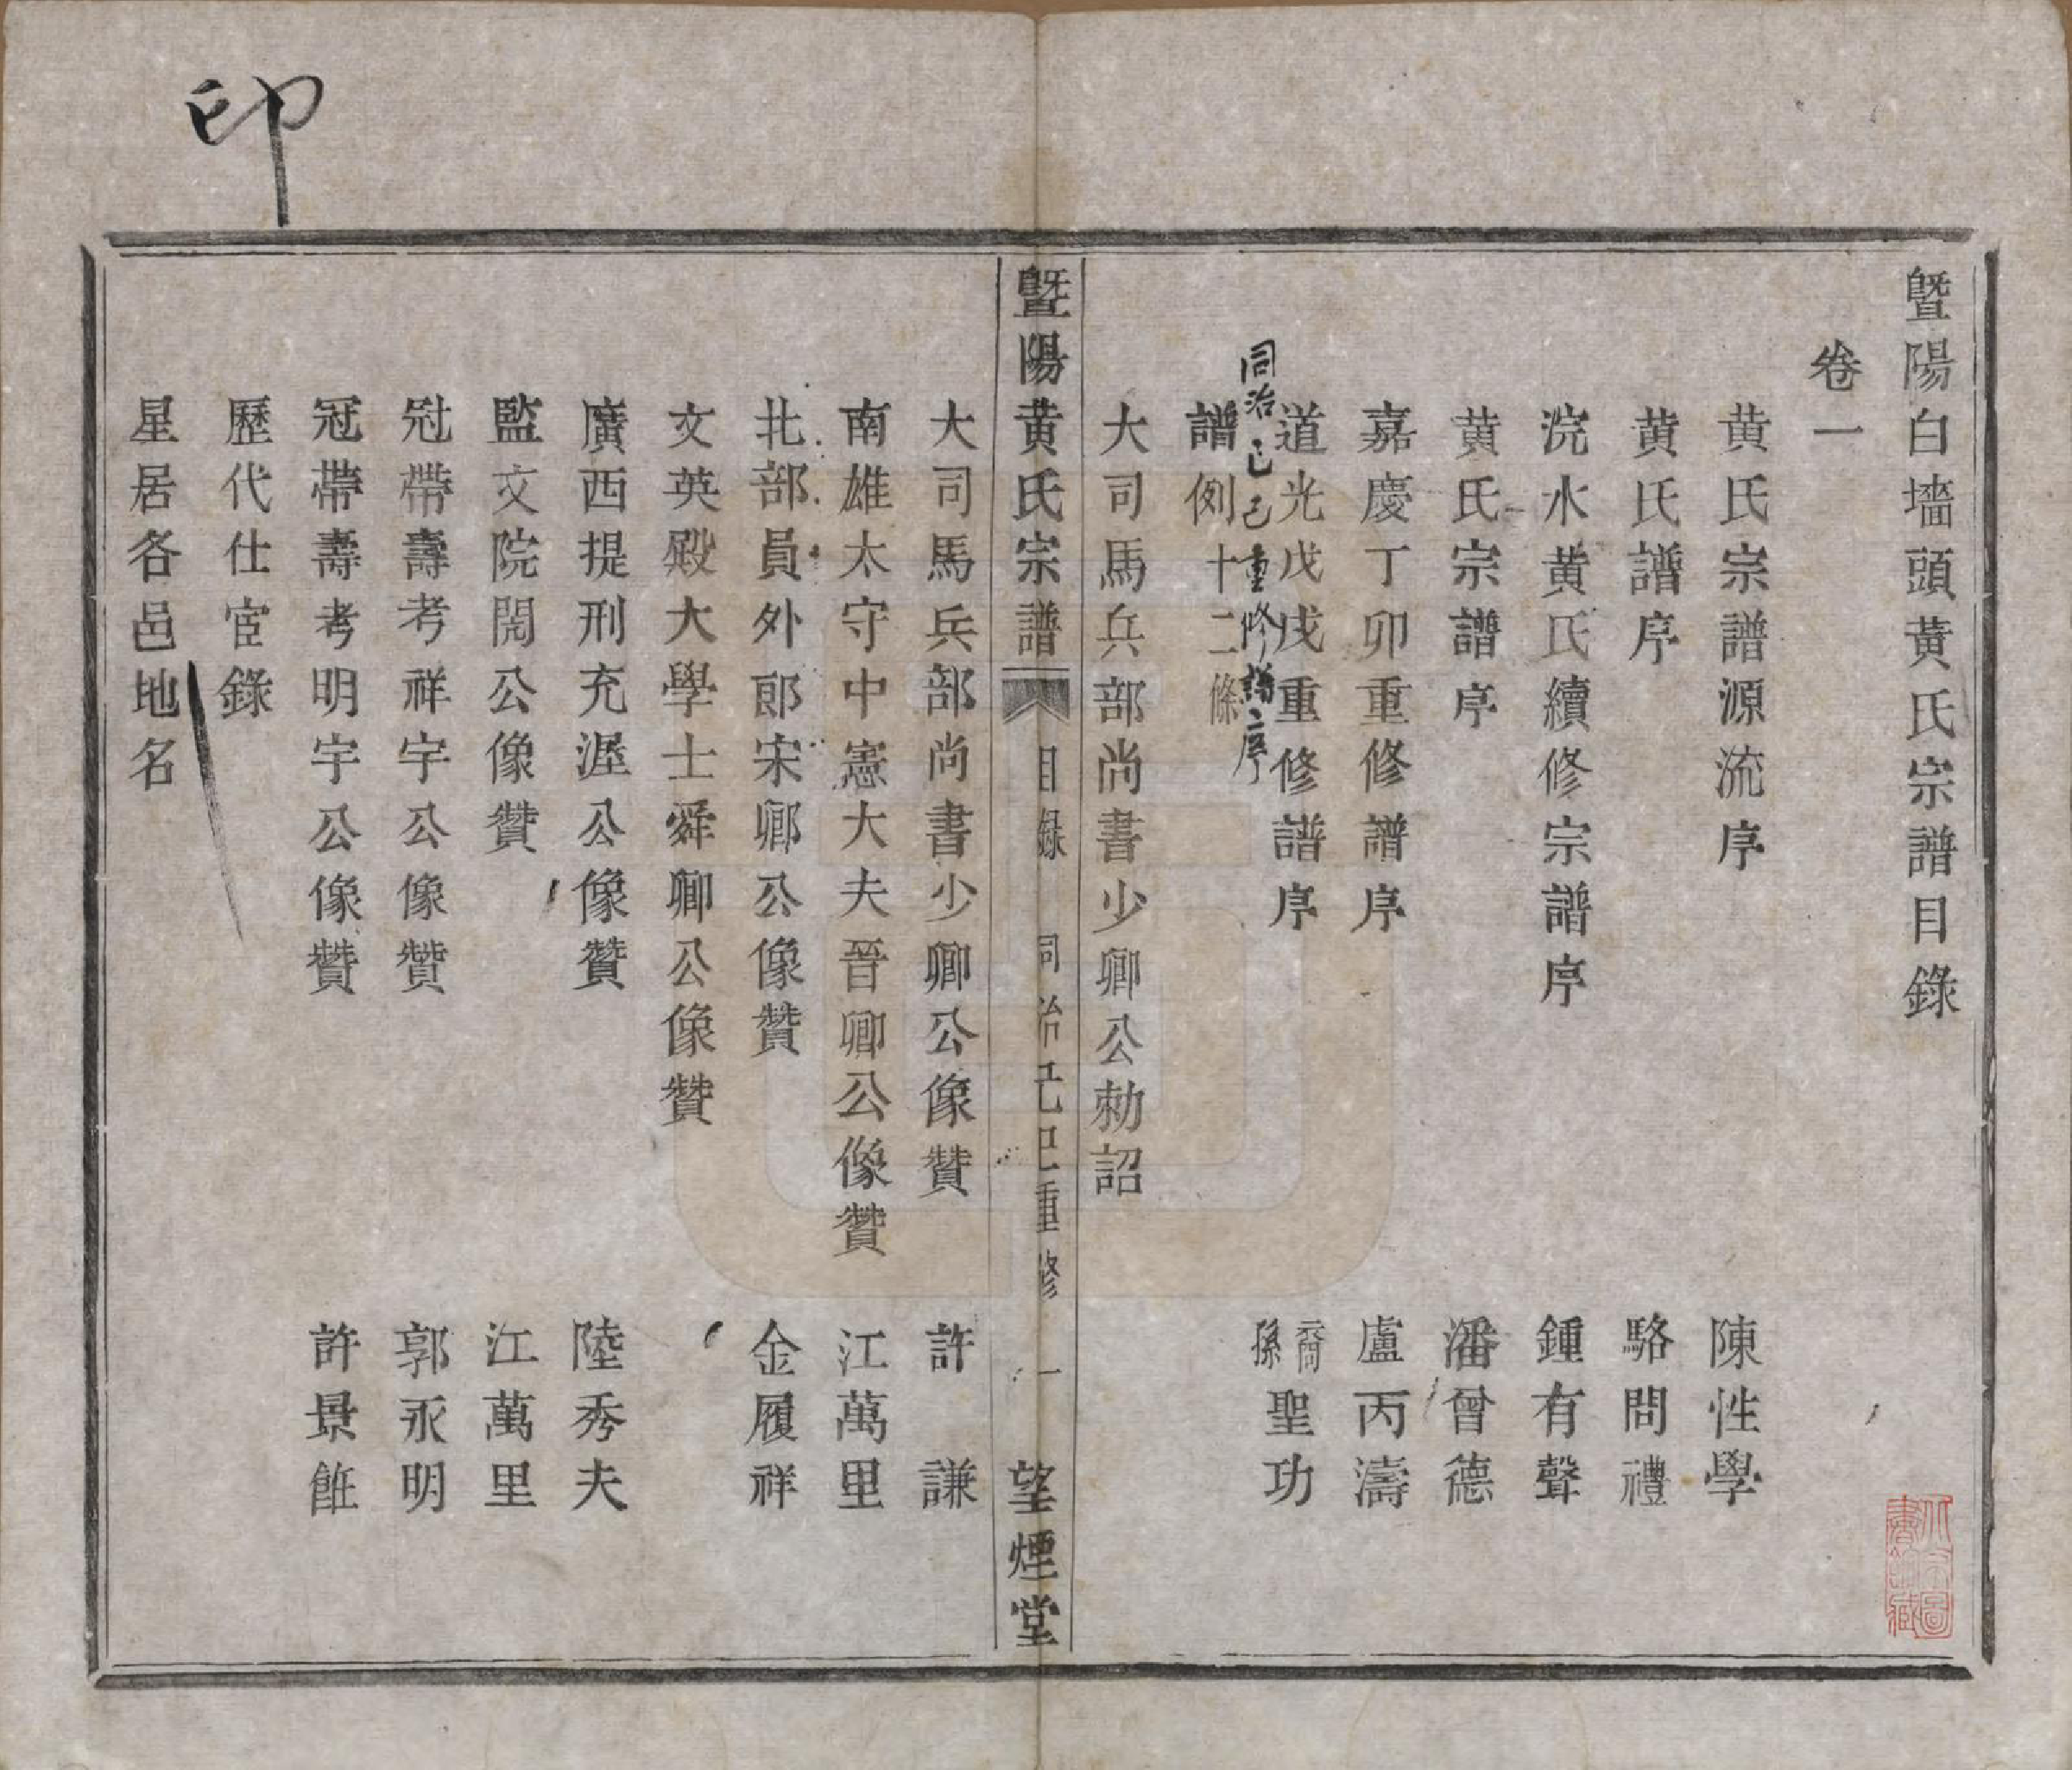 暨陽白墻頭黄氏宗譜目錄
卷一
黄氏宗譜源流序 陳性學
黄氏譜序 駱問禮
浣水黄氏續修宗譜序 鍾有聲
黄氏宗譜序 潘曾德
嘉慶丁卯重修譜序 盧丙濤
道光戊戌重修譜序 裔孫聖功
同治己巳重修譜序
譜例十二條
大司馬兵部尚書少卿公勑詔
暨陽黄氏宗譜 目錄 同治己巳重修 一 望煙堂
大司馬兵部尚書少卿公像贊 許謙
南雄太守中憲大夫晉卿公像贊 江萬里
北部員外郎宋卿公像贊 金履祥
文英殿大學士舜卿公像贊
廣西提刑充渥公像贊 陸秀夫
監文院閱公像贊 江萬里
冠帶壽考祥宇公像贊 郭永明
冠帶壽考明宇公像贊 許景
歷代仕宦錄
星居各邑地名
印